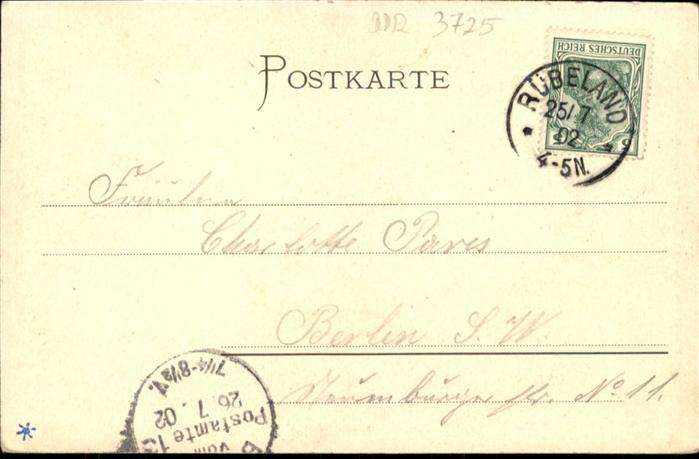 3725
POSTKARTE
DEUTSCHES REICH
RÜBELAND
25/7
02
4-5N.
Fräulein
Charlotte Paris
Berlin S. W.
Neuenburger str. No 11.
7¼-8½V.
26.7.02
Postamte 13
vom
B